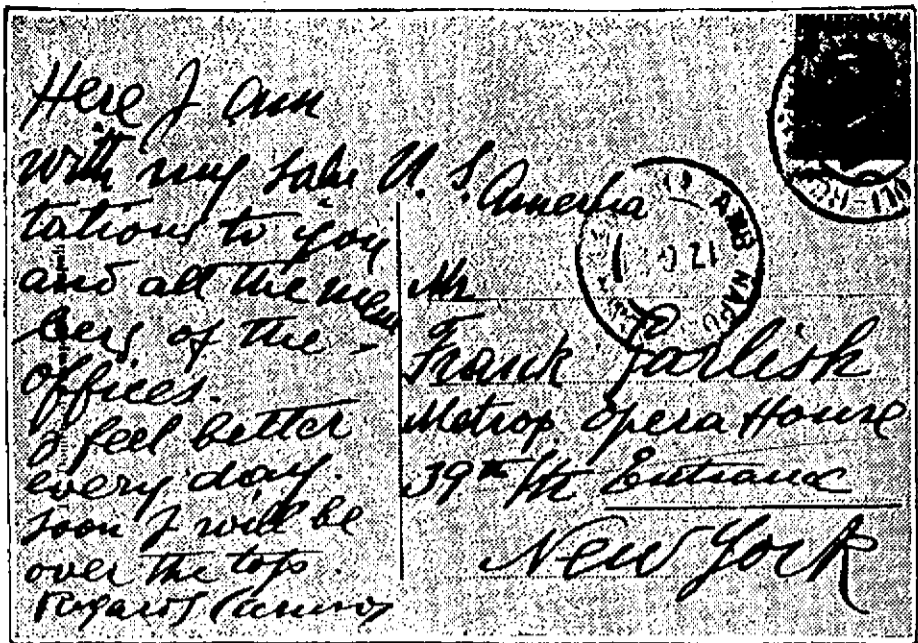 Here I am
with my salu
tations to you
and all the mem
bers of the
offices.
I feel better
every day.
Soon I will be
over the top.
Regards Caruso
U. S. America
Mr
Frank Garlish
Metrop. Opera House
39th Str Entrance
New York